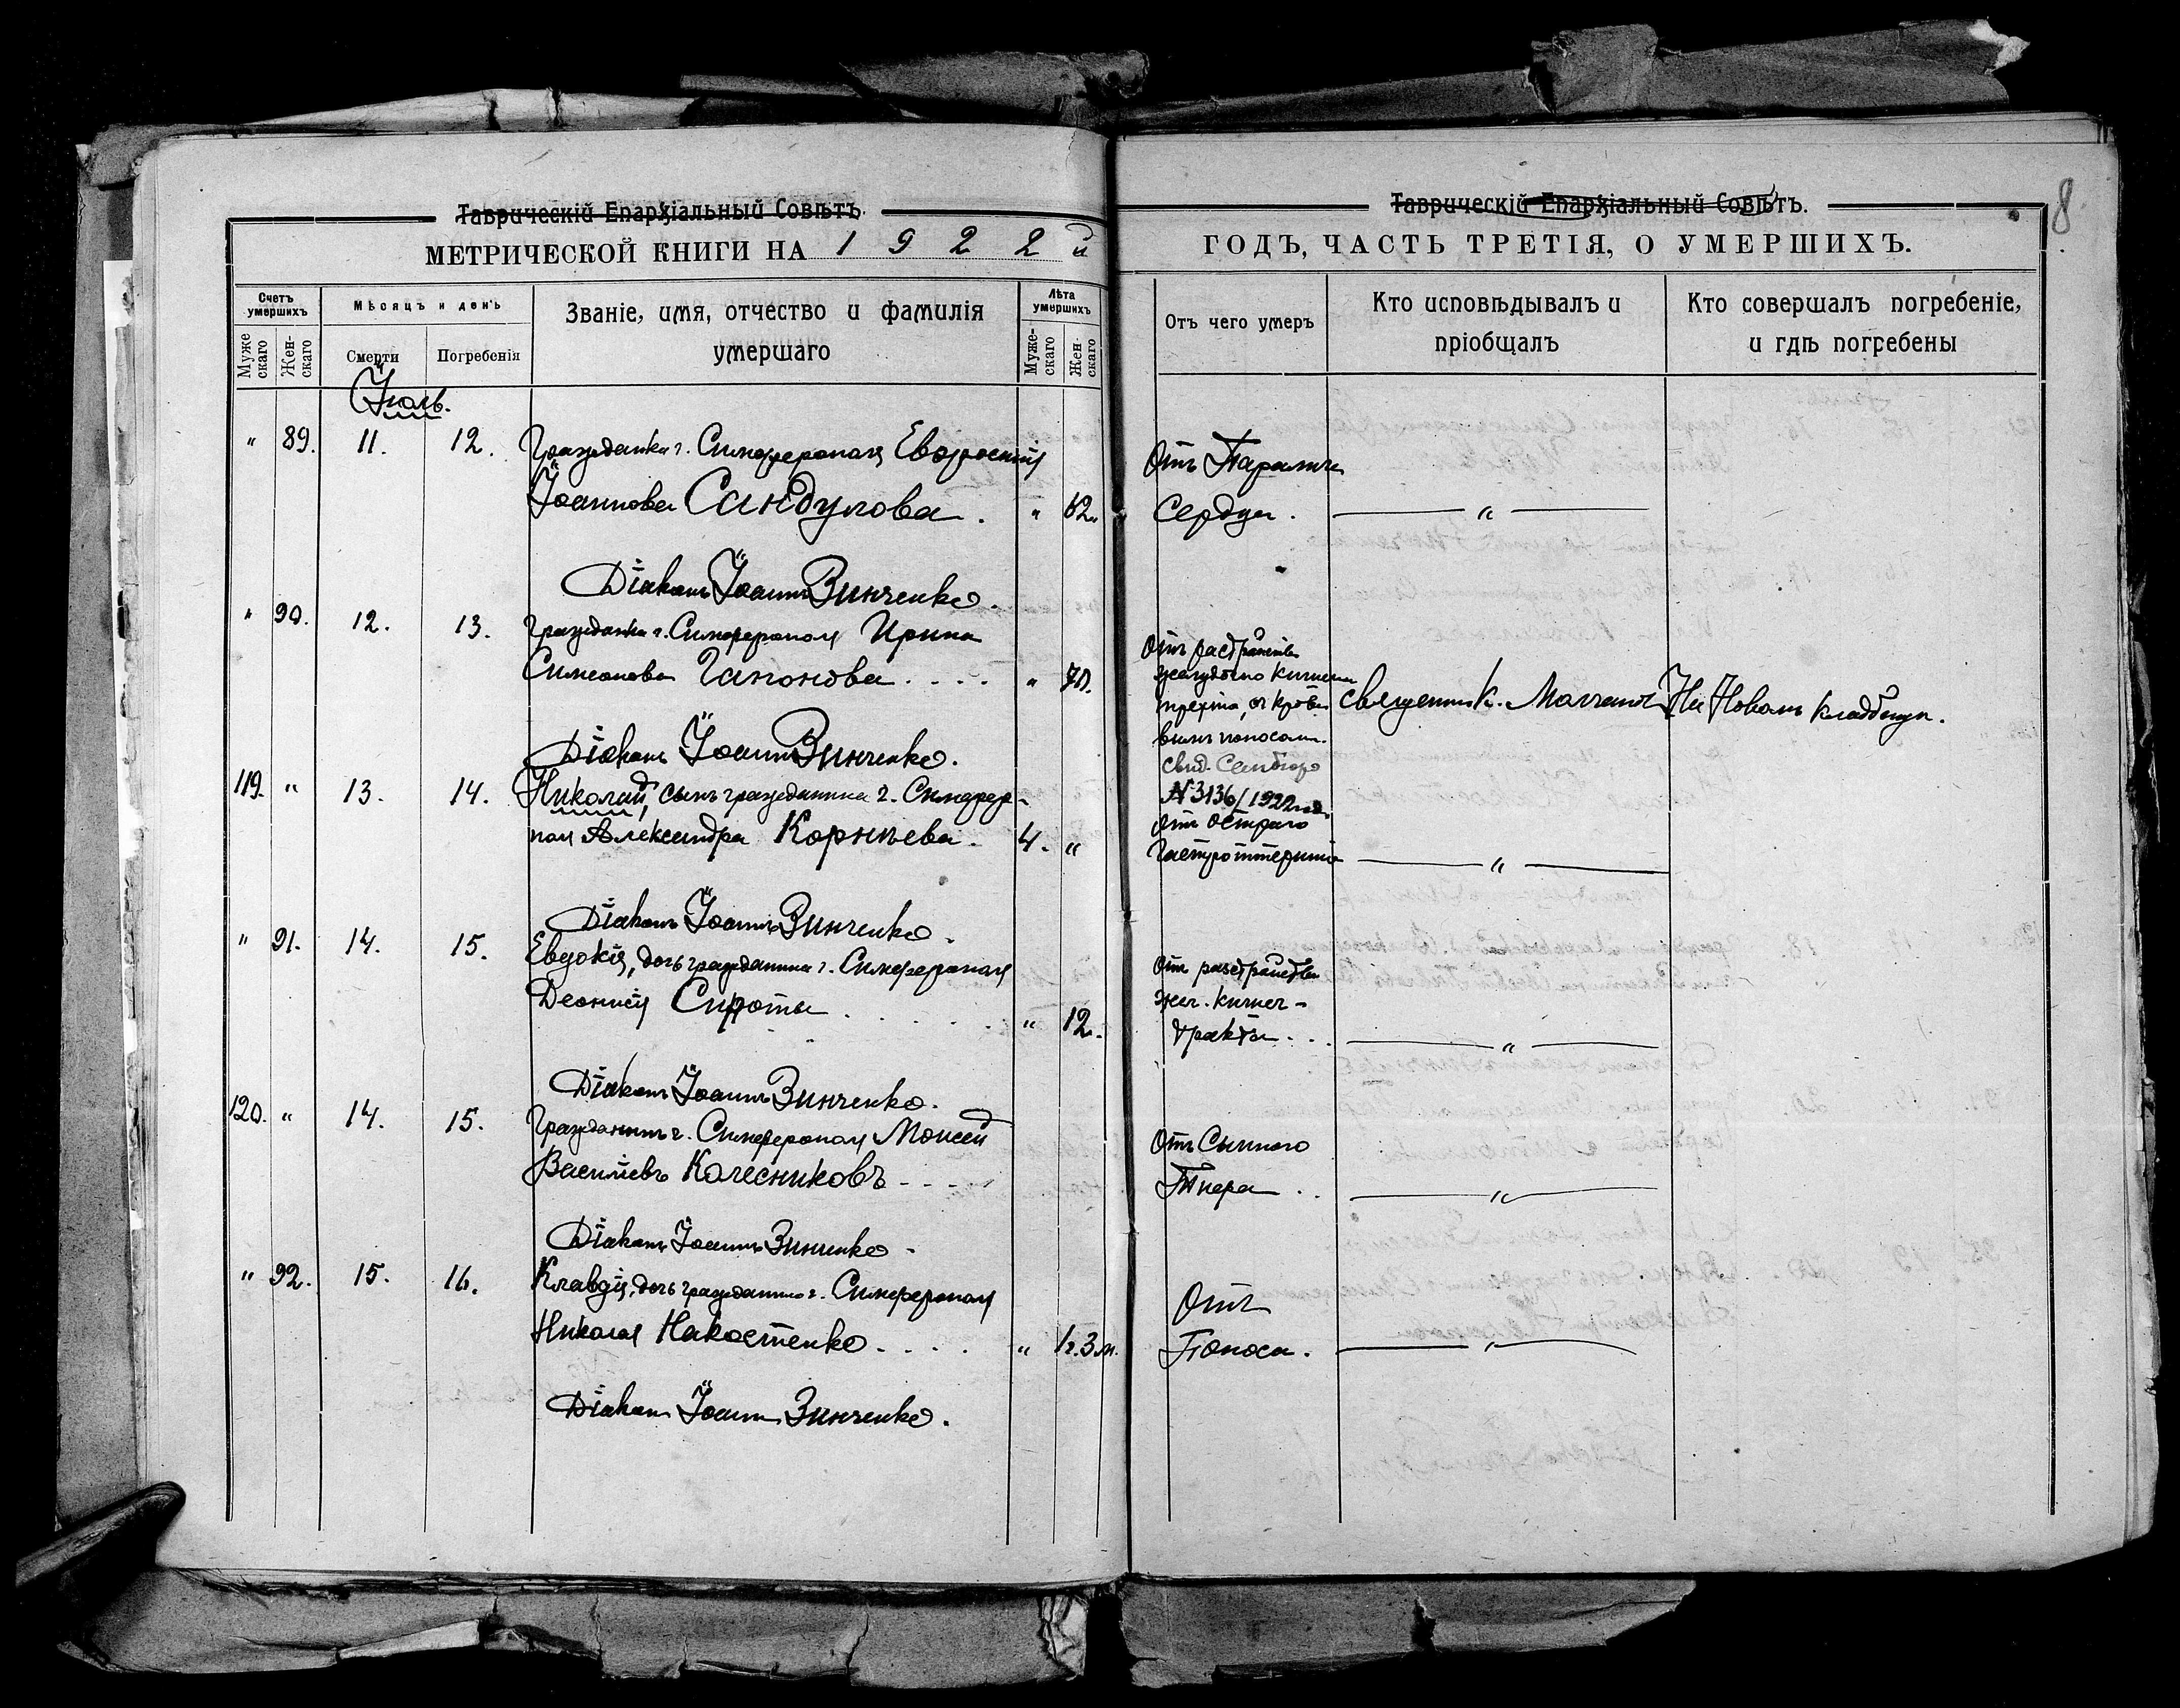 Таврическій Епархіальный Совѣтъ.
МЕТРИЧЕСКОЙ КНИГИ НА 1922й
Счетъ умершихъ
Мѣсяцъ и день
Званіе, имя, отчество и фамилія
умершаго
Лѣта умершихъ
Мужескаго
Женскаго
Смерти
Погребенія
Мужескаго
Женскаго
Іюль.
" 89. 11. 12. Гражданка г. Симферополя Евфросинія
Іоаннова Сандулова. " 62.
Діаконъ Іоаннъ Зинченко.
" 90. 12. 13. Гражданка г. Симферополя Ирина
Симеонова Гапонова. . . . " 70.
Діаконъ Іоаннъ Зинченко.
119. " 13. 14. Николай, сынъ гражданина г. Симферо-
поля Александра Корнѣева. 4. "
Діаконъ Іоаннъ Зинченко.
" 91. 14. 15. Евдокія, дочь гражданина г. Симферополя
Деонисія Сироты . . . . " 12.
Діаконъ Іоаннъ Зинченко.
120. " 14. 15. Гражданинъ г. Симферополя Моисей
Василіевъ Колесниковъ - - -
Діаконъ Іоаннъ Зинченко.
" 92. 15. 16. Клавдія, дочь гражданина г. Симферополя
Николая Накостенко. . . . " 1г. 3м.
Діаконъ Іоаннъ Зинченко.
8
Таврическій Епархіальный Совѣтъ.
ГОДЪ, ЧАСТЬ ТРЕТІЯ, О УМЕРШИХЪ.
Отъ чего умеръ
Кто исповѣдывалъ и
пріобщалъ
Кто совершалъ погребеніе,
и гдѣ погребены
Отъ Паралича
Сердца. — " —
Отъ растройства
желудочно кишечн
тракта, съ крова
вымъ поносомъ.
свид.
№ 3136/1922 года
Священник. На Новомъ кладбищѣ.
Отъ остраго
— " —
Отъ растройства
жел. кишеч-
тракта. . . — " —
Отъ Сыпного
Тифа . . — " —
Отъ
Поноса. — " —